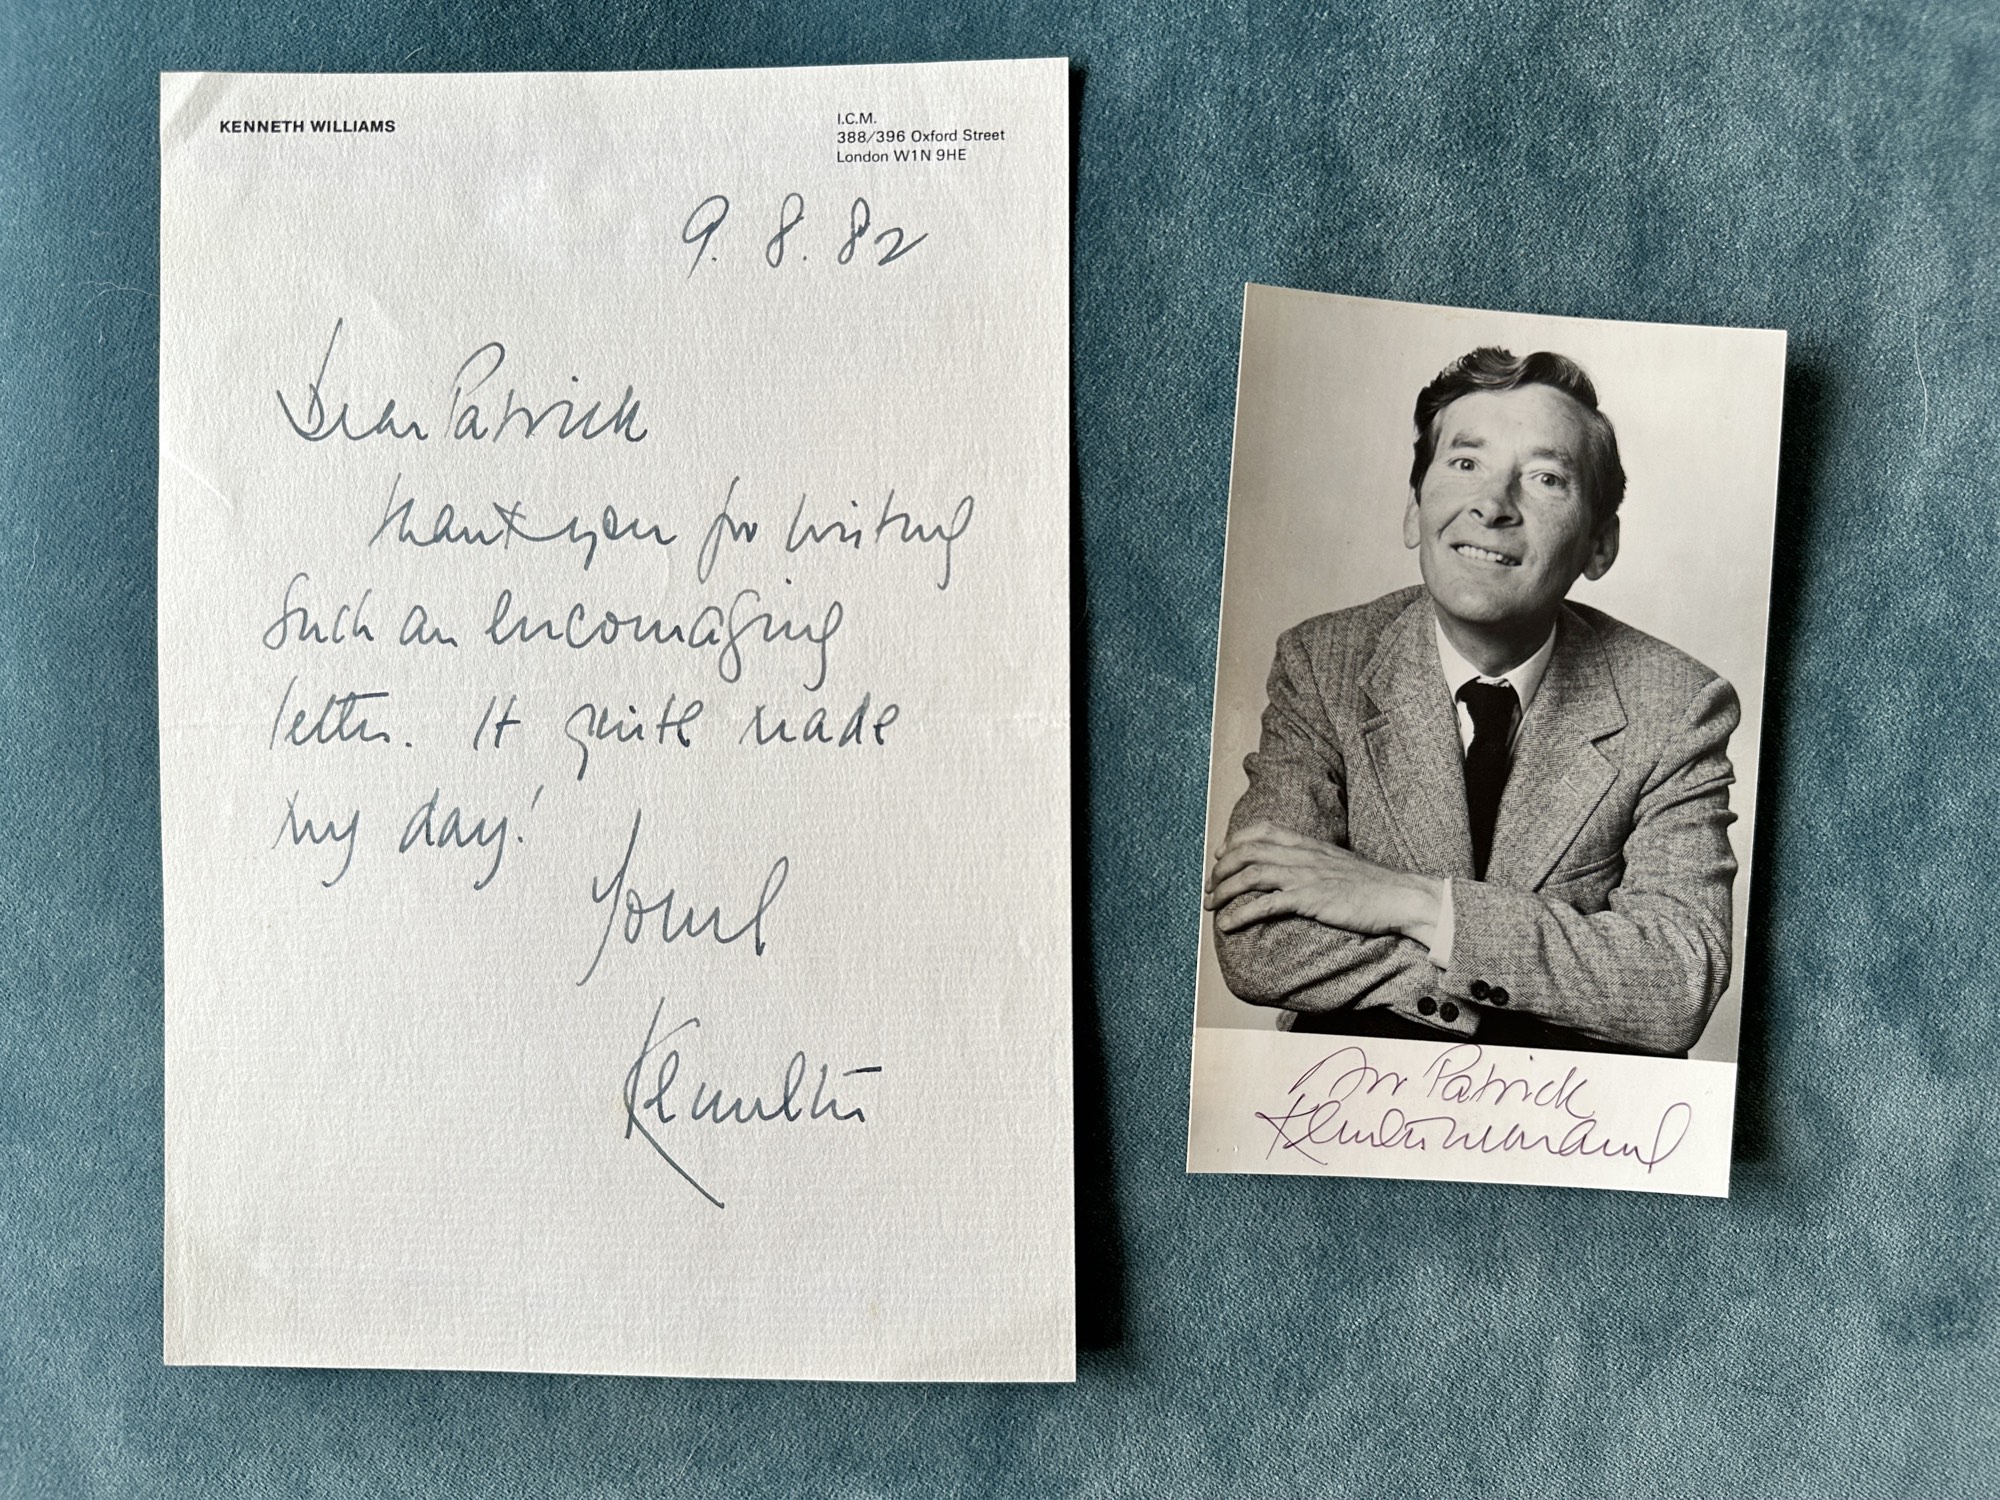 KENNETH WILLIAMS
I.C.M.
388/396 Oxford Street
London W1N 9HE
9. 8. 82
Dear Patrick
thank you for writing
such an encouraging
letter. It quite made
my day!
Yours
Kenneth
for Patrick
Kenneth Williams